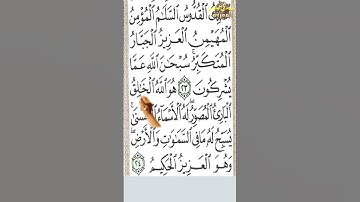 ٱلْقُدُّوسُ ٱلسَّلَـٰمُ ٱلْمُؤْمِنُ
ٱلْمُهَيْمِنُ ٱلْعَزِيزُ ٱلْجَبَّارُ
ٱلْمُتَكَبِّرُ ۚ سُبْحَـٰنَ ٱللَّهِ عَمَّا
يُشْرِكُونَ ٢٣ هُوَ ٱللَّهُ ٱلْخَـٰلِقُ
ٱلْبَارِئُ ٱلْمُصَوِّرُ ۖ لَهُ ٱلْأَسْمَآءُ ٱلْحُسْنَىٰ ۚ
يُسَبِّحُ لَهُۥ مَا فِى ٱلسَّمَـٰوَٰتِ وَٱلْأَرْضِ ۖ
وَهُوَ ٱلْعَزِيزُ ٱلْحَكِيمُ ٢٤